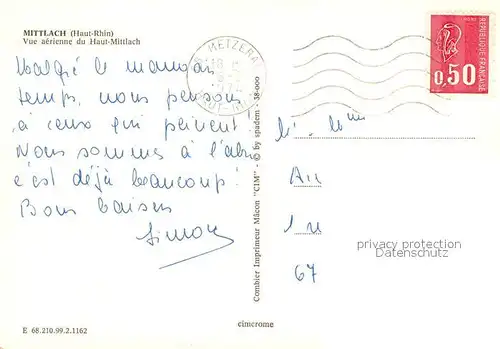 MITTLACH (Haut-Rhin)
Vue aérienne du Haut-Mittlach
Malgré le mauvais
temps, nous pensons
à ceux qui peinent!
Nous sommes à l'abri
c'est déjà beaucoup!
Bons baisers
Simon
METZERAL
REPUBLIQUE FRANÇAISE
0,50
Combier Imprimeur Mâcon "CIM" - © by spadem - 38-000
67
privacy protection
DatenSchutz
E 68.210.99.2.1162
cimcrome